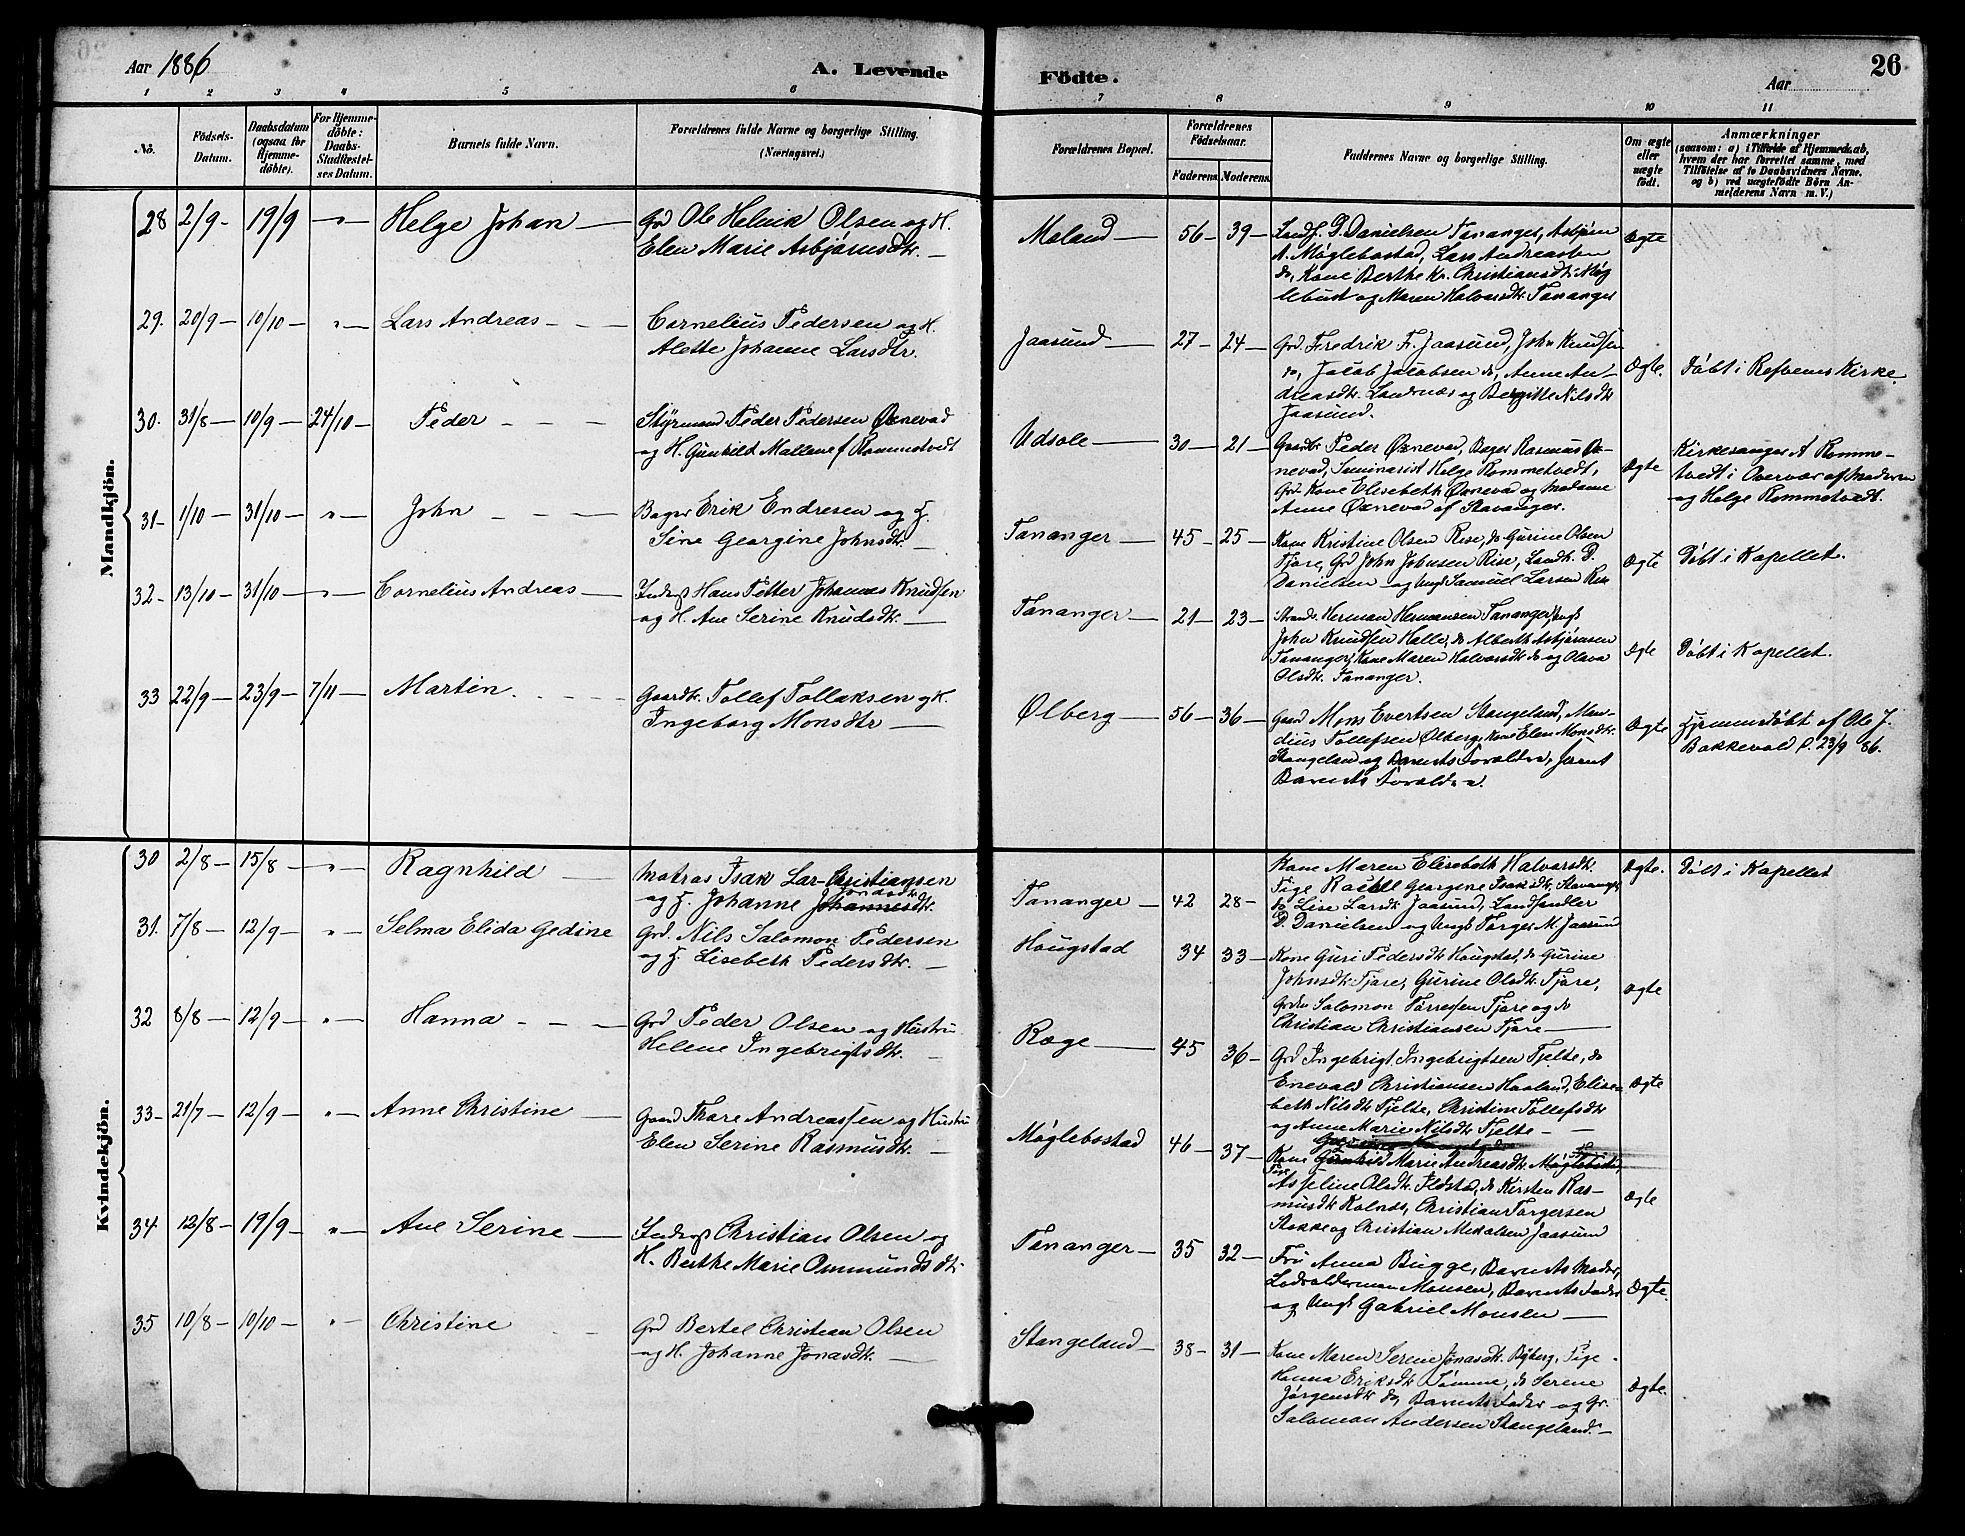 Aar 1886
A. Levende
Födte.
Aar
26
1 2 3 4 5 6 7 8 9 10 11
No.
Födsels-
Datum.
Daabsdatum
(ogsaa for
Hjemme-
döbte).
For Hjemme-
döbte:
Daabs-
Stadfæstel-
ses Datum.
Barnets fulde Navn.
Forældrenes fulde Navne og borgerlige Stilling.
(Næringsvei.)
Forældrenes Bopæl.
Forældrenes
Födselsaar.
Faderens.
Moderens.
Faddernes Navne og borgerlige Stilling.
Om ægte
eller
uægte
födt.
Anmærkninger
(saasom: a) i Tilfælde af Hjemmedaab,
hvem der har forrettet samme, med
Tilföielse af to Daabsvidners Navne.
og b) ved uægtefödte Börn An-
melderens Navn m. V.)
Mandkjön.
28 2/9 - 19/9 " Helge Johan
Grd Ole Helnik Olsen og H.
Elen Marie Asbjørnsdtr.
Meland 56 - 39
Landh. D. Danielsen Tananger, Asbjørn
A. Møglebostad, Lars Andreassen
do, Kone Berthe Kr. Christiansdtr. Møg
lebust og Maren Halvorsdtr. Tananger
Ægte
29. 20/9 - 10/10 " Lars Andreas
Cornelius Pedersen og H.
Alette Johanne Larsdtr.
Jaasund 27 - 24
Grd. Fredrik F. Jaasund, John Knudsen
do, Jacob Jacobsen do, Anne An-
dreasdtr. Landsnæs og Bergitte Nilsdtr
Jaasund.
Ægte.
Døbt i Refvenes Kirke.
30. 31/8 - 10/9 - 24/10 Peder
Styrmand Peder Pedersen Øxnevad
og H. Gunhild Mallene f. Rommetvedt
Udsole 30 - 21
Gaardbr. Peder Øxnevad, Bager Rasmus Øx-
nevad, Seminarist Helge Rommetvedt,
Grd Kone Elisebeth Øxnevad og Madame
Anne Øxnevad af Stavanger.
Ægte
Kirkesanger A Romme-
tvedt i Overvær af Moderen
og Helge Rommetvedt.
31 - 1/10 - 31/10 " John
Bager Erik Endresen og H.
Sine Georgine Johnsdtr.
Tananger 45 - 25
Kone Kristine Olsen Risa, do Gurine Olsen
Tjore, Grd John Johnsen Rise, Landh. D.
Danielsen og Ungk Samuel Larsen Risa
Ægte
Døbt i Kapellet.
32 - 13/10 - 31/10 " Cornelius Andreas
Inderst Hans Petter Johannes Knudsen
og H. Ane Serine Knudsdtr.
Tananger 21 - 23
Strands. Herman Hermansen Tananger, Ungk
John Knudsen Halle, do Alberth Asbjørnsen
Tananger, Kone Maren Halvorsdtr do og Olava
Olsdtr. Tananger.
Ægte
Døbt i Kapellet.
33 22/9 - 23/9 - 7/11 Martin
Gaardbr. Tollef Tollaksen og H.
Ingeborg Monsdtr
Ølberg 56 - 36
Gaard Mons Evertsen Stangeland, Man-
dius Tollefsen Ølberg, Kone Elen Monsdtr.
Stangeland og Barnets Forældre, Samt
Barnets Forældre.
Ægte
Hjemmedøbt af Ole J.
Bakkevold d. 23/9 86.
Kvindekjön.
30 2/8 - 15/8 " Ragnhild
Matros Isak Lars Christiansen
og H. Johanne Johannesdtr.
Tananger 42 28
Kone Maren Elisebeth Halvorsdtr.
Pige Rachel Georgine Isaksdtr. Stavanger
do Lise Larsdtr Jaasund, Landhandler
D. Danielsen og Ungk Torger M. Jaasund
Ægte.
Døbt i Kapellet
31. 7/8 - 12/9 " Selma Elida Gedine
Grd. Nils Salomon Pedersen
og H. Lisebeth Pedersdtr.
Hougstad 34 33
Kone Guri Pedersdtr Haugstad, do Gurine
Johnsdtr Tjore, Gurine Olsdtr Tjore,
Grdbr Salomon Torresen Tjore og do
Christian Christiansen Tjore
Ægte
32 8/8 - 12/9 " Hanna
Grd Peder Olsen og Hustru
Helene Ingebrigtsdtr.
Ræge 45 36
Grd Ingebrigt Ingebrigtsen Tjelte, do
Enevald Christiansen Haaland, Elisa-
beth Nilsdtr Tjelte, Christine Tollefsdtr
og Anne Marie Nilsdtr Tjelte
Ægte
33 - 21/7 - 12/9 " Anne Christine
Gaard Thore Andreassen og Hustru
Elen Serine Rasmusdtr.
Møglebostad 46 37
Kone Gunhild Marie Andreasdtr. Møglebostad
Pige Asseline Olsdtr. Ildstad, do Kirsten Ras-
musdtr Kolnes, Christian Torgersen
Stokke og Christian Mikalsen Jaasund
Ægte
34 12/8 - 19/9 " Ane Serine
Inderst Christian Olsen og
H. Berthe Marie Ommundsdtr.
Tananger 35 32
Fru Anna Bugge, Barnets Moder,
Lodsolderman Monsen, Barnets Fader
og Ungk Gabriel Monsen
Ægte.
35 10/8 - 10/10 " Christine
Grd Bertel Christian Olsen
og H. Johanne Jonasdtr.
Stangeland 38 - 31
Kone Maren Serine Jonasdtr. Byberg, Pige
Hanna Eriksdtr Sømme, do Serene
Jørgensdtr do, Barnets Fader og Gr.
Salomon Andersen Stangeland.
Ægte.